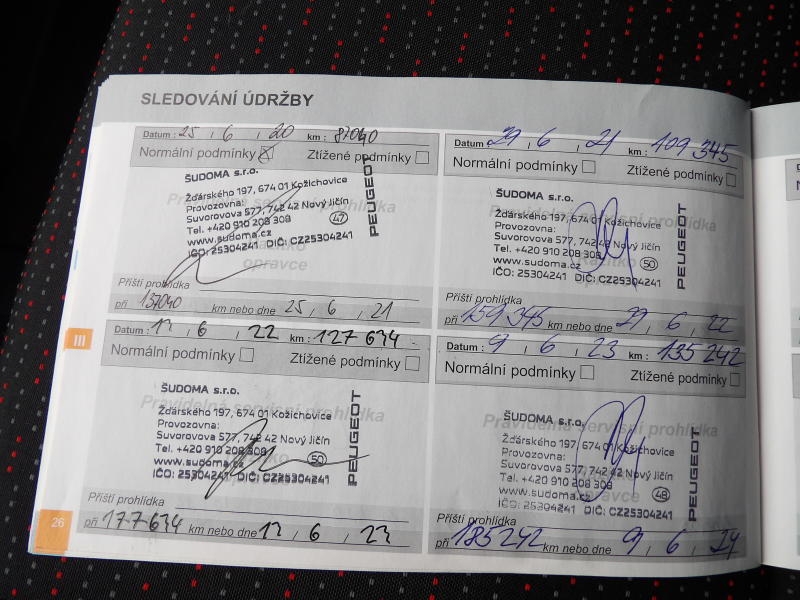 SLEDOVÁNÍ ÚDRŽBY
Datum : 25 , 6 , 20 km : 87040
Normální podmínky Ztížené podmínky
Pravidelná servisní prohlídka
ŠUDOMA s.r.o.
Žďárského 197, 674 01 Kožichovice
Provozovna:
Suvorovova 577, 742 42 Nový Jičín
Tel. +420 910 208 308
www.sudoma.cz
IČO: 25304241 DIČ: CZ25304241
47
PEUGEOT
Razítko
opravce
Příští prohlídka
při 137040 km nebo dne 25 , 6 , 21
Datum : 29 , 6 , 21 km : 109 345
Normální podmínky Ztížené podmínky
Pravidelná servisní prohlídka
ŠUDOMA s.r.o.
Žďárského 197, 674 01 Kožichovice
Provozovna:
Suvorovova 577, 742 42 Nový Jičín
Tel. +420 910 208 308
www.sudoma.cz
IČO: 25304241 DIČ: CZ25304241
50
PEUGEOT
Razítko
opravce
Příští prohlídka
při 159 345 km nebo dne 29 , 6 , 22
III
Datum : 13 , 6 , 22 km : 127 634
Normální podmínky Ztížené podmínky
Pravidelná servisní prohlídka
ŠUDOMA s.r.o.
Žďárského 197, 674 01 Kožichovice
Provozovna:
Suvorovova 577, 742 42 Nový Jičín
Tel. +420 910 208 308
www.sudoma.cz
IČO: 25304241 DIČ: CZ25304241
50
PEUGEOT
Příští prohlídka
při 177 634 km nebo dne 13 , 6 , 23
Datum : 9 , 6 , 23 km : 135 242
Normální podmínky Ztížené podmínky
Pravidelná servisní prohlídka
ŠUDOMA s.r.o.
Žďárského 197, 674 01 Kožichovice
Provozovna:
Suvorovova 577, 742 42 Nový Jičín
Tel. +420 910 208 308
www.sudoma.cz
IČO: 25304241 DIČ: CZ25304241
48
PEUGEOT
Příští prohlídka
při 185 242 km nebo dne 9 , 6 , 24
26